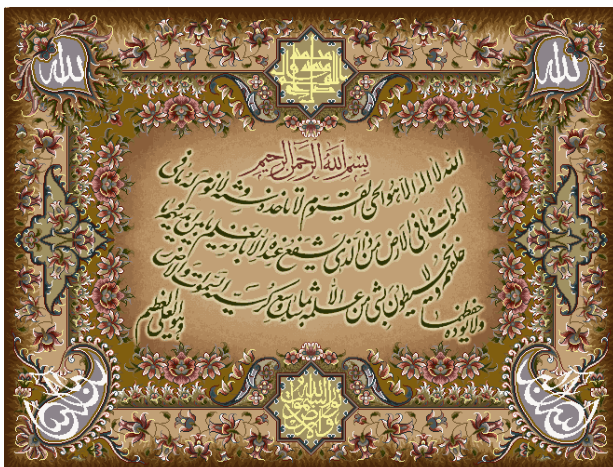 الله
الله
بسم الله الرحمن الرحیم
الله لا اله الا هو الحی القیوم لا تاخذه سنة و لا نوم له ما فی
السموات و ما فی الارض من ذا الذی یشفع عنده الا باذنه یعلم ما بین ایدیهم و ما
خلفهم و لا یحیطون بشیء من علمه الا بما شاء وسع کرسیه السموات و الارض
و لا یوده حفظهما و هو العلی العظیم